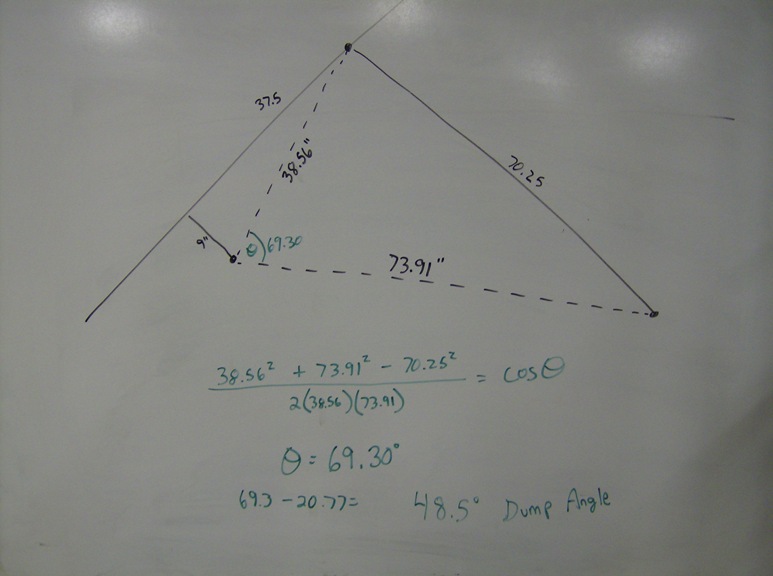 37.5
38.56"
70.25
9"
θ 69.30
73.91"
38.56² + 73.91² - 70.25²
2(38.56)(73.91)
= cosθ
θ = 69.30°
69.3 - 20.77= 48.5° Dump Angle